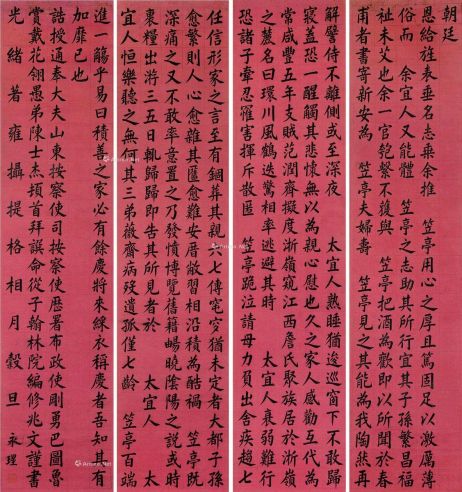 朝廷
恩給旌表垂名志乘余推 笠亭用心之厚且篤固足以激厲薄
俗而 余宜人又能體 笠亭之志助其所行宜其子孫繁昌福
祉未艾也余一官匏繫不獲與 笠亭把酒為歡即以所聞於春
甫者書寄新安為 笠亭夫婦壽 笠亭見之其能為我陶然再
解譬侍不離側或至深夜 太宜人熟睡猶逡巡窗下不敢歸
寢蓋恐一醒觸其悲懷無以為親心慰也久之家人感勸互代為
常咸豐五年支賊范潤齋擬度浙嶺窺江西詹氏聚族居於浙嶺
之麓名曰環川風鶴迭驚相率逃避其時 太宜人衰弱難行
恐諸子忍罹害揮斥散匿 笠亭跪泣請母力負出舍疾趨七
任信形家之言至有錮葬其親六七傳窀穸猶未定者大都子孫
愈繁則人心愈雜其匿愈難安厝敝習相沿積為酷禍 笠亭既
深痛之又不敢率意置之乃發憤博覽舊籍暢曉陰陽之說或時
裹糧出游三五日輒歸歸即告其所見者於 太宜人 太
宜人恒樂聽之無何其三弟薇齋病歿遺孤僅七齡 笠亭百端
進一觴乎易曰積善之家必有餘慶將來綵衣稱慶者吾知其有
加靡已也
誥授通奉大夫山東按察使司按察使歷署布政使剛勇巴圖魯
賞戴花翎愚弟陳士杰頓首拜譔命從子翰林院編修兆文謹書
光緒著雍攝提格相月穀旦